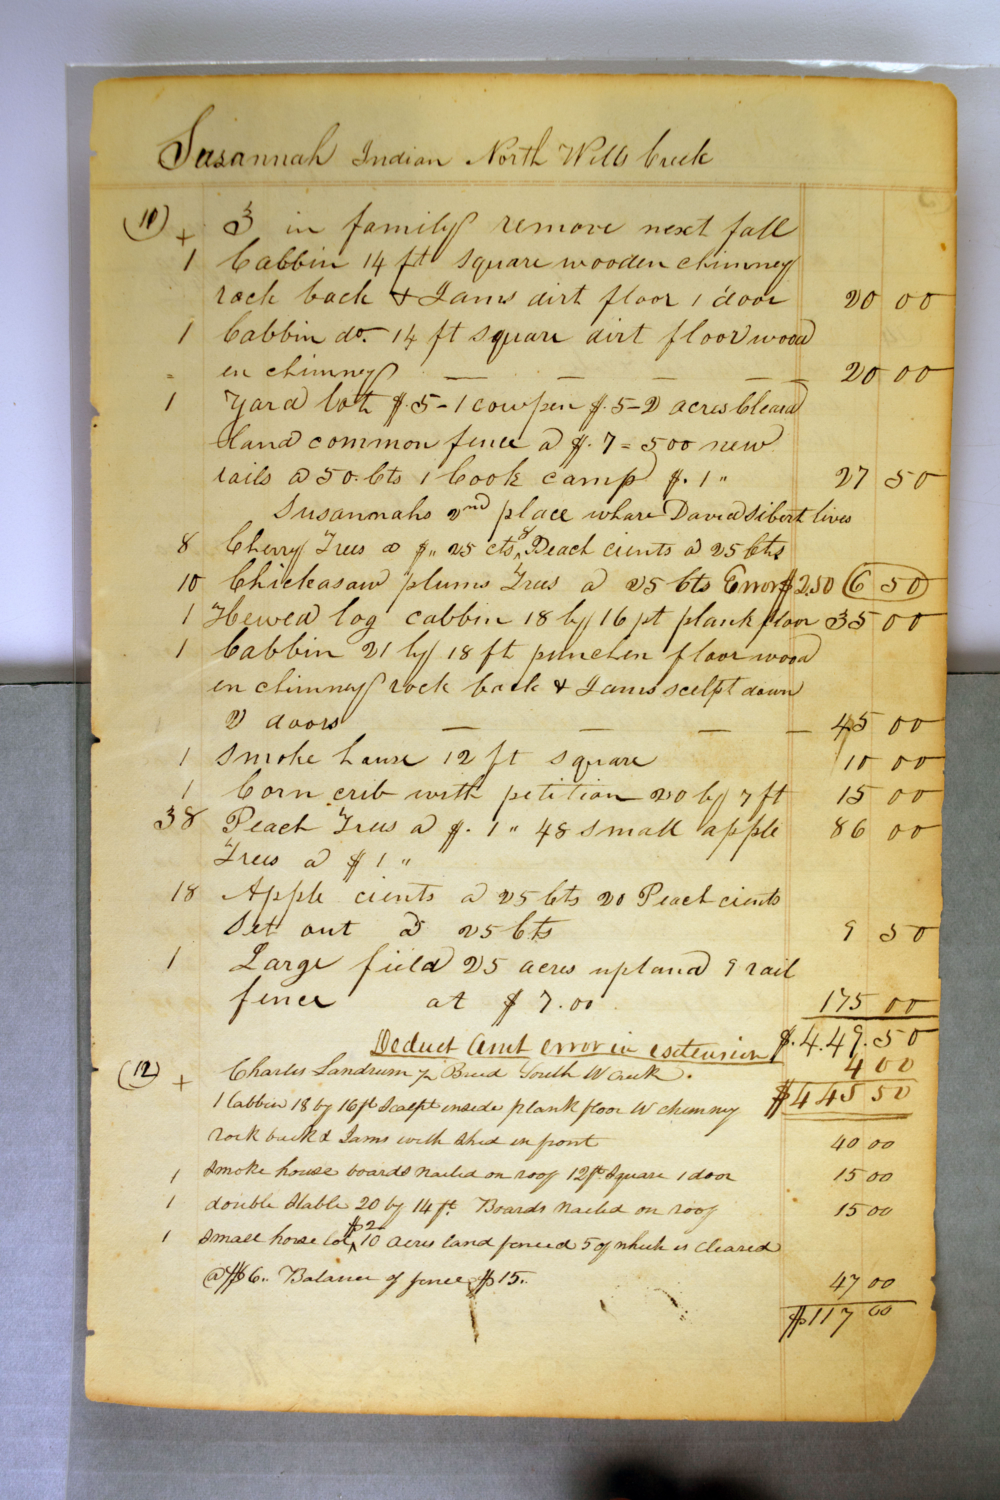 Susannah Indian North Wills Creek
(11) + 3 in family remove next fall
1 Cabbin 14 ft square wooden chimney
rock back & Jams dirt floor 1 door 20 00
1 Cabbin do. 14 ft square dirt floor wood
en chimney — — — — 20 00
1 Yard lot $.5 - 1 cowpen $.5 - 2 acres Cleard
land common fence a $.7 = 500 new
rails a 50 Cts 1 Cook camp $.1 " 27 50
Susannahs 2nd place whare David Sibert lives
8 Cherry Trees a $ " 25 cts 8 Peach cients a 25 Cts
10 Chickasaw plums Trees a 25 Cts Error $2.50 6 50
1 Hewed log cabbin 18 by 16 pt plank floor 35 00
1 Cabbin 21 by 18 ft punchen floor wood
en chimney rock back & Jams scelpt down
2 doors — — — — 45 00
1 Smoke house 12 ft square 10 00
1 Corn crib with petition 20 by 7 ft 15 00
38 Peach Trees a $.1 " 48 small apple 86 00
Trees a $1 "
18 Apple cients a 25 Cts 20 Peach cients
Set out a 25 Cts 9 50
1 Large field 25 acres upland 9 rail
fence at $7.00 175 00
$.4.49.50
Deduct Amt error in extension 4 00
(12) + Charles Landrum Breed South W Creek.
$445 50
1 Cabbin 18 by 16 ft Scalpt inside plank floor W chimney
rock back & Jams with shed in front 40 00
1 Smoke house boards nailed on roof 12 ft square 1 door 15 00
1 double Stable 20 by 14 ft. Boards nailed on roof 15 00
1 Small horse lot $2 10 acres land fenced 5 of which is cleared
@ $6.. Balance of fence $15.. 47 00
$117 00